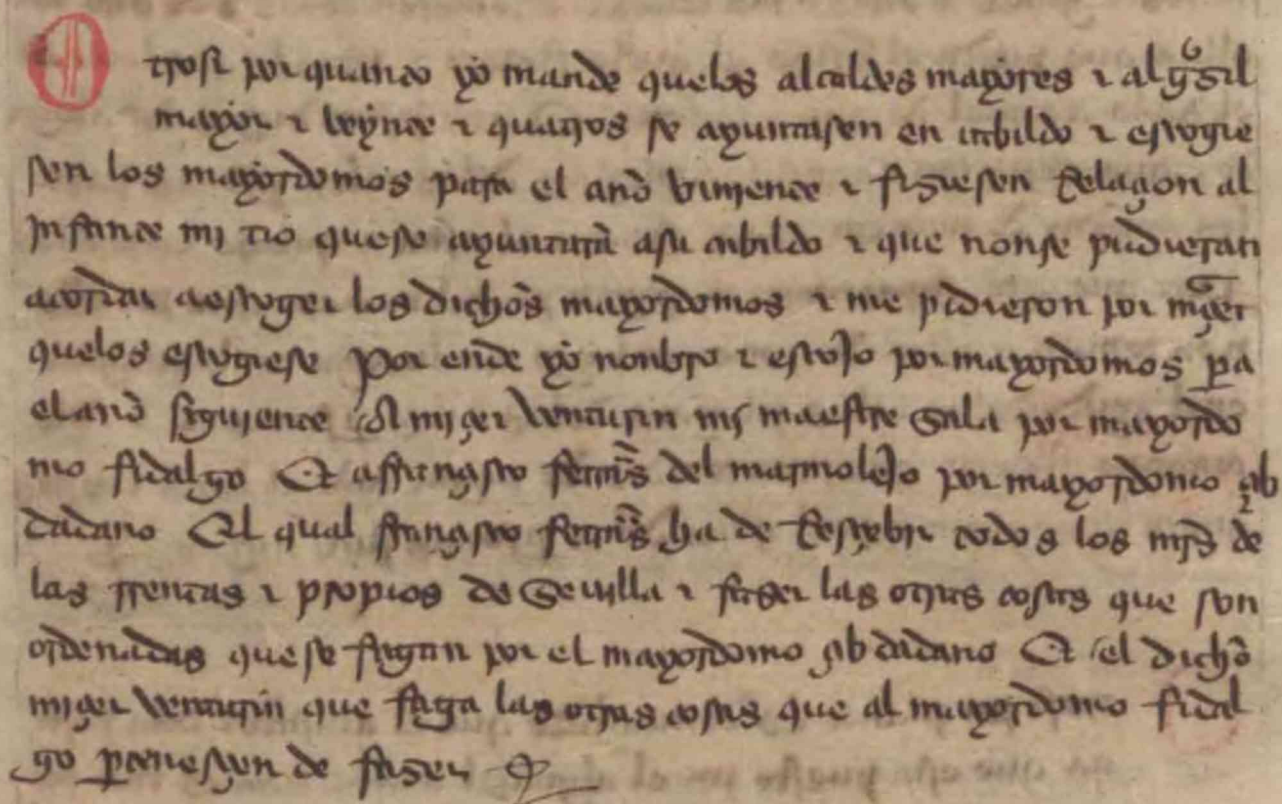 Otrosi por quanto yo mande quelos alcaldes mayores τ alg̃ᵒsil
mayor τ veynte τ quatros se ayuntasen en cabildo τ escogie
sen los mayordomos para el año viniente τ fiziesen relaçon al
jnfante mj tio quese ayuntarã asu cabildo τ que nonse pudieran
acordar aescoger los dichõs mayordomos τ me pidieron por mr̃çet
quelos escogiese Por ende yo nonbro τ escojo por mayordomos pa
el año siguiente A miçer Venturin mj maestre sala por mayordo
mo fidalgo Et affrançisco ferrnãs del marmolejo por mayordomo çib
dadano El qual françisco ferrnãs ha de rresçebir todos los mr̃s de
las rrentas τ propios de Seuilla τ faser las otras cosas que son
ordenadas quese fagan por el mayordomo çibdadano Et el dichõ
miçer Venturin que faga las otras cosas que al mayordomo fidal
go pertenesçen de faser